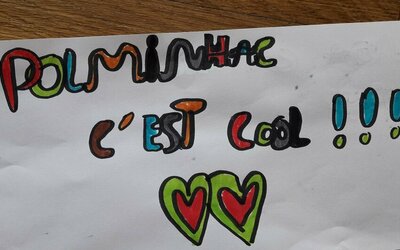 POLMINHAC
C'EST COOL !!!